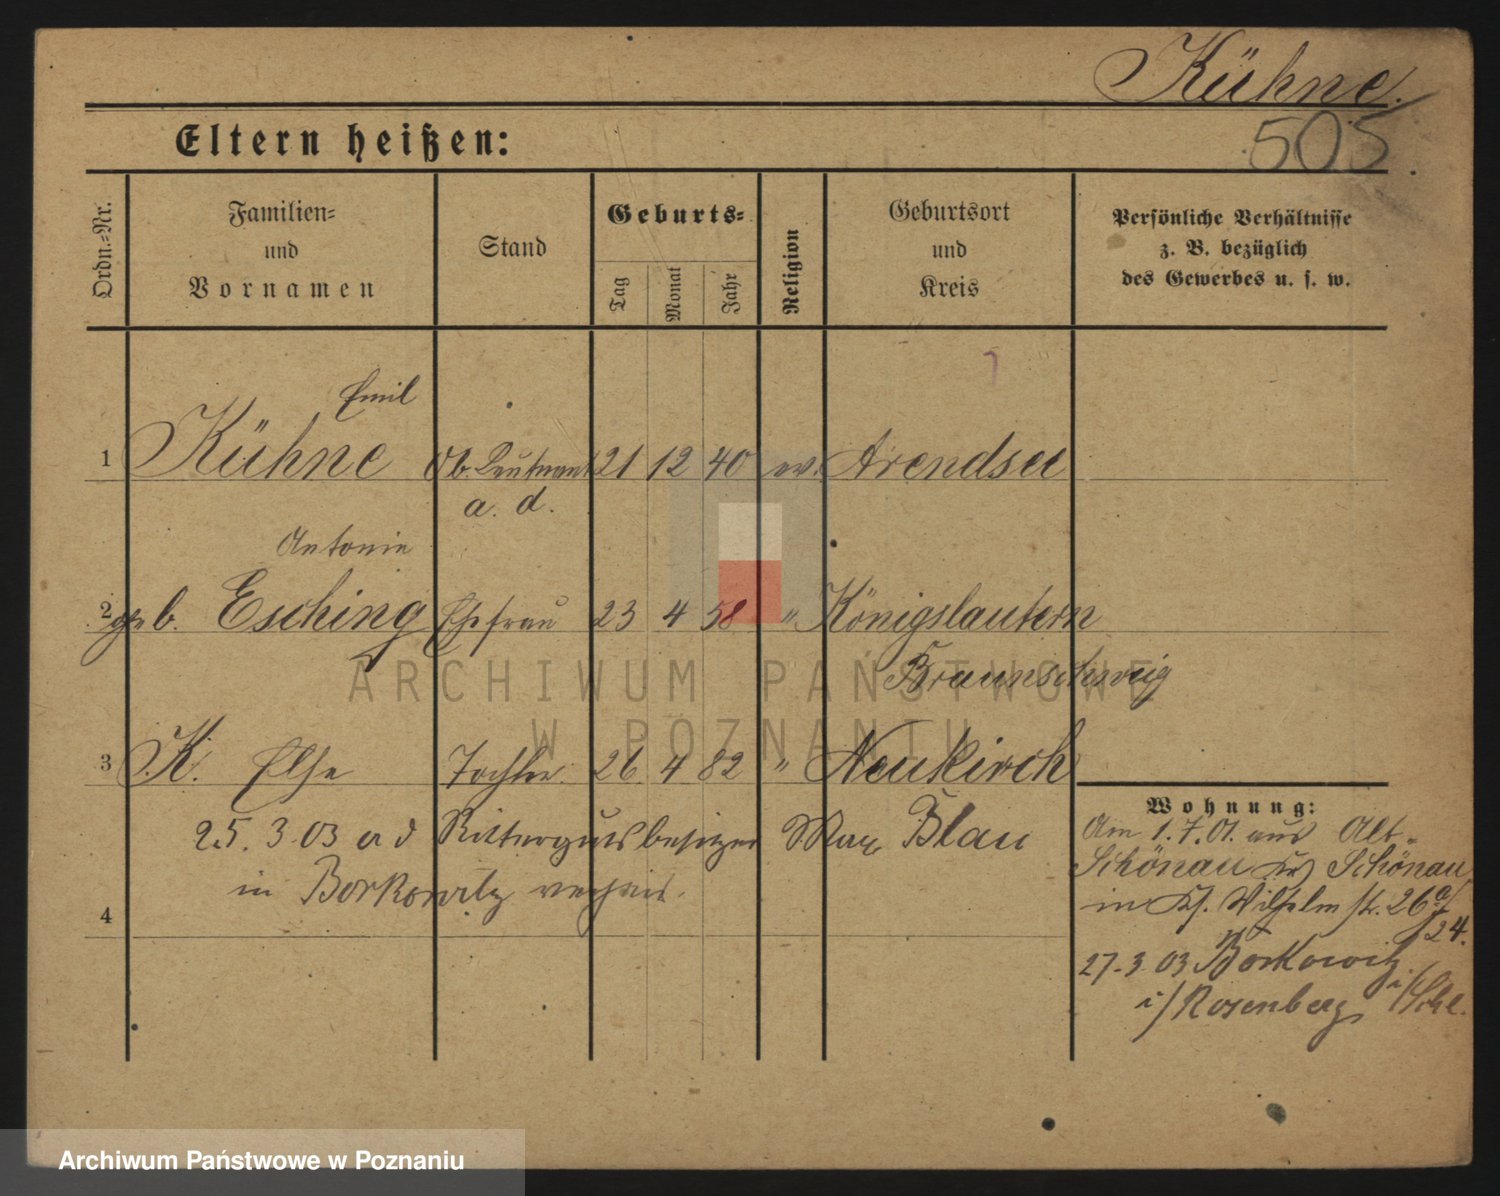 Kühne.
505
Eltern heißen:
Ordn.=Nr.
Familien=
und
Vornamen
Stand
Geburts=
Tag
Monat
Jahr
Religion
Geburtsort
und
Kreis
Persönliche Verhältnisse
z. B. bezüglich
des Gewerbes u. s. w.
Emil
1 Kühne Ob. Leutnant 21 12 40 ev. Arendsee
a. d.
Antonie
2 geb. Esching Ehefrau 23 4 58 " Königslautern
Braunschweig
3 K. Else Tochter 26 4 82 " Neukirch
25. 3. 03 a d Rittergutsbesitzer Max Blau
in Borkowitz verheir.
4
Wohnung:
Am 1. 7. 01. aus Alt-
Schönau Schönau
in Wilhelm str. 26a/
24.
27. 3. 03 Borkowitz
i/Rosenberg i/Schl.
ARCHIWUM PAŃSTWOWE
W POZNANIU
Archiwum Państwowe w Poznaniu